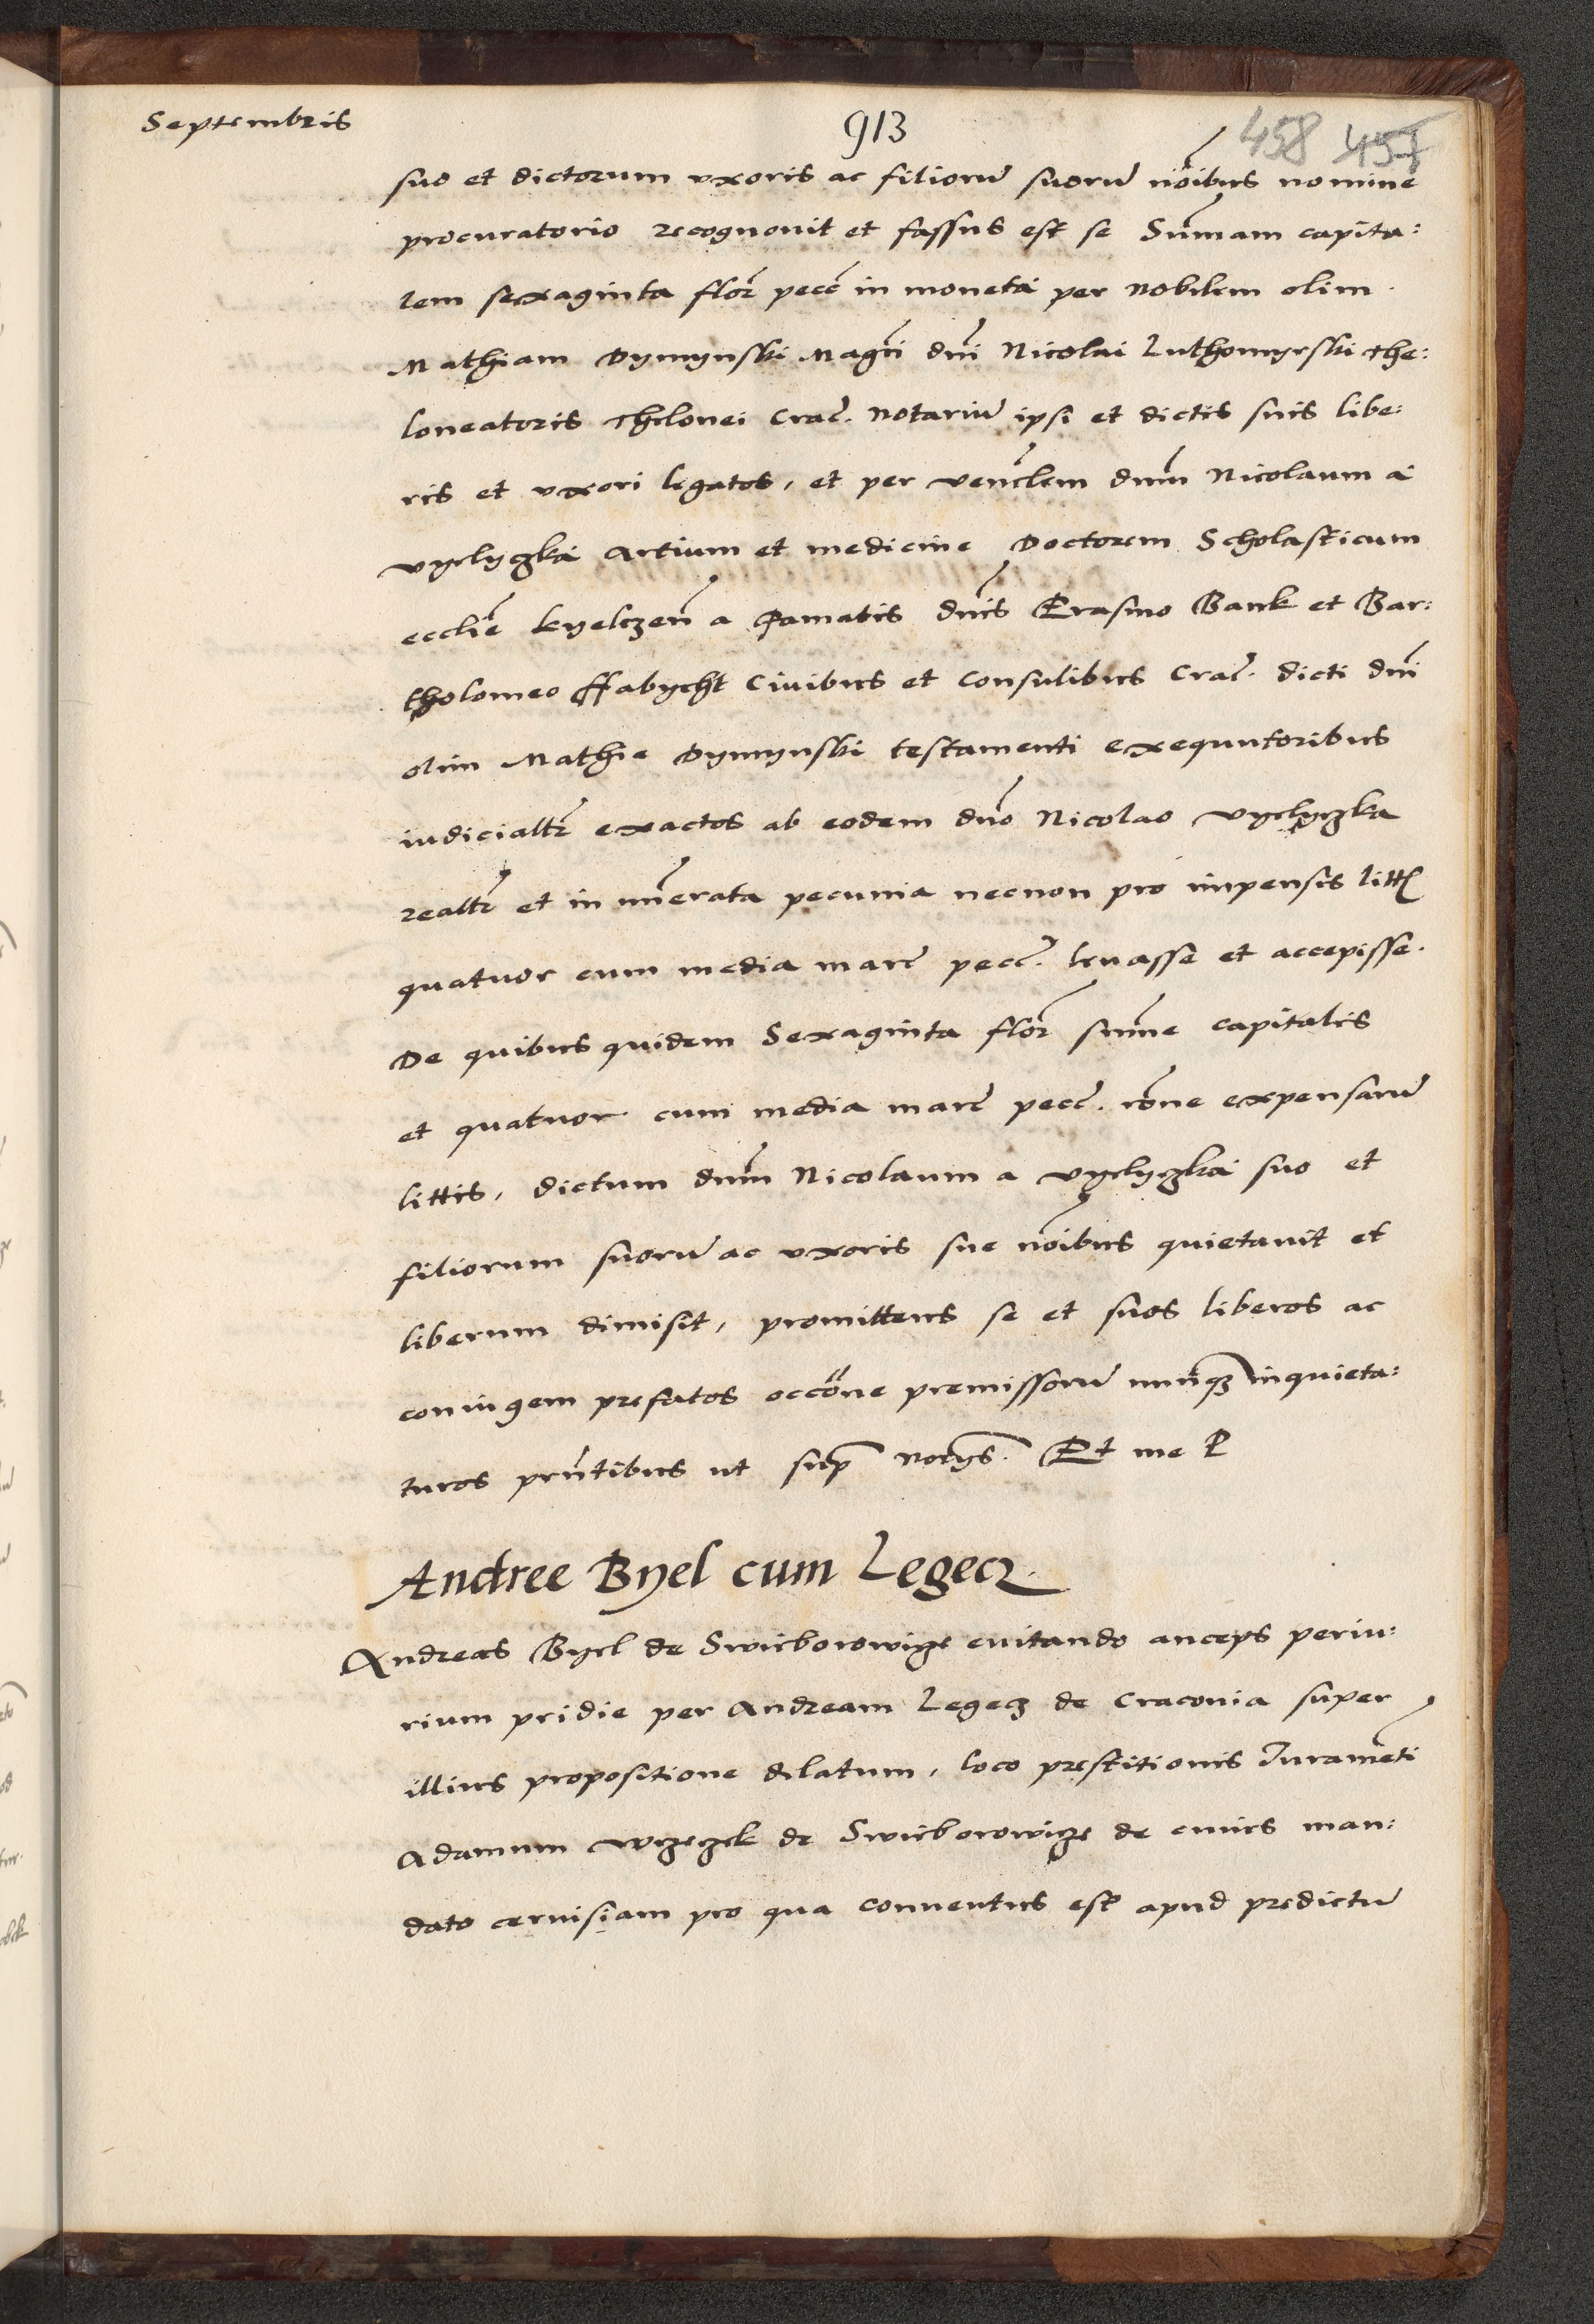 Septembris
913
458 457
suo et dictorum uxoris ac filioru̅ suoru̅ no̅ibus nomine
procuratorio recognouit et fassus est se Su̅mam capita:
lem sexaginta flor̅ pecc̅ in moneta per Nobilem olim
Mathiam Dymynski Magci̅ dni̅ Nicolai Luthomyrski the:
loneatoris Thelonei Crac̅. Notariu̅ ipsi et dictis suis libe:
ris et uxori legatos, et per vene̅lem dnm̅ Nicolaum a
vyelyczka Artium et medicine Doctorem Scholasticum
ecclie̅ kyelczen̅ a Famatis dnis̅ Erasmo Bank et Bar:
tholomeo ffabycht Ciuibus et Consulibus Crac̅. dicti dni̅
olim Mathie Dymynski testamenti exequutoribus
iudicialtr̅ exactos ab eodem dno̅ Nicolao vyelyczka
realtr̅ et in nu̅erata pecunia necnon pro impensis litt̅
quatuor cum media marc̅ pecc̅. leuasse et accepisse.
De quibus quidem Sexaginta flor̅ sum̅e capitalis
et quatuor cum media marc̅ pecc̅. ro̅ne expensaru̅
littis, dictum dnm̅ Nicolaum a vyelyczka suo et
filiorum suoru̅ ac uxoris sue no̅ibus quietauit et
liberum dimisit, promittens se et suos liberos ac
coniugem prefatos occo̅ne premissoru̅ nunq̅ inquieta:
turos prn̅tibus ut sup̅ no̅ys. Et me P
Andree Byel cum Legecz
Andreas Byel de Swirborowicze euitando anceps periu:
rium pridie per Andream Legecz de Craconia super
illius propositione delatum, loco prestitionis Iurame̅ti
Adamum wrzeczek de Swirborowicze de cuius man:
dato ceruisiam pro qua conuentus est apud predictu̅